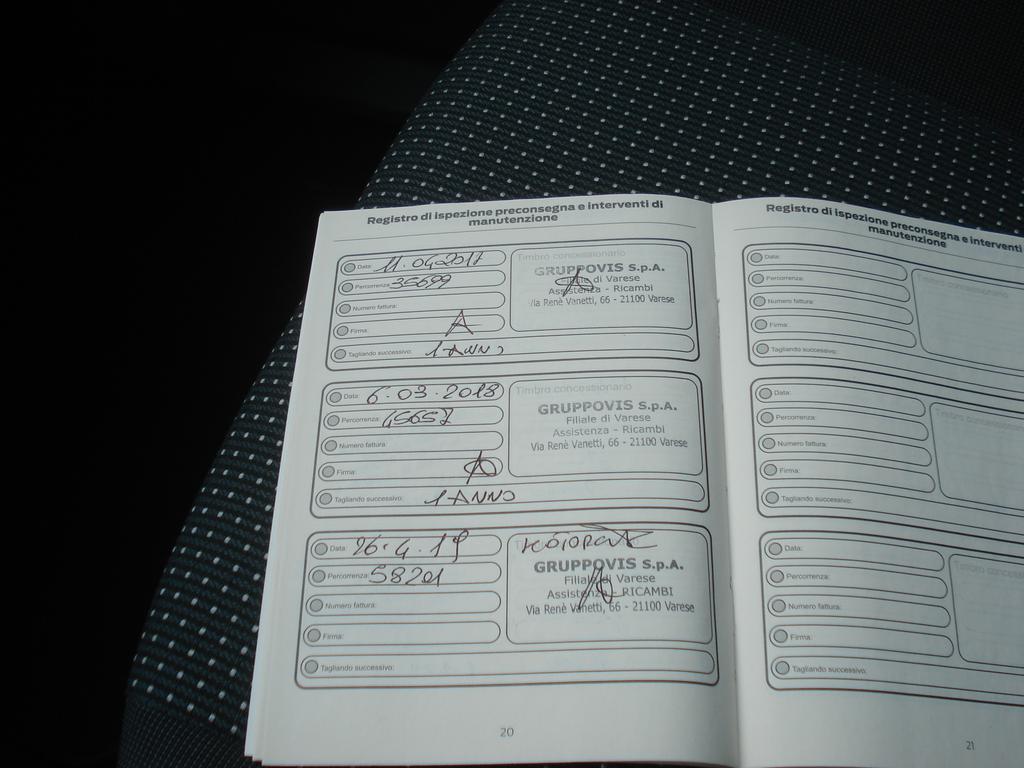 Registro di ispezione preconsegna e interventi di
manutenzione
Data: 11.04.2017
Percorrenza: 35699
Numero fattura:
Firma:
Tagliando successivo: 1 ANNO
Timbro concessionario
GRUPPOVIS S.p.A.
Filiale di Varese
Assistenza - Ricambi
Via Renè Vanetti, 66 - 21100 Varese
Data: 6.03.2018
Percorrenza: 45657
Numero fattura:
Firma:
Tagliando successivo: 1 ANNO
Timbro concessionario
GRUPPOVIS S.p.A.
Filiale di Varese
Assistenza - Ricambi
Via Renè Vanetti, 66 - 21100 Varese
Data: 26.4.19
Percorrenza: 58201
Numero fattura:
Firma:
Tagliando successivo:
GRUPPOVIS S.p.A.
Filiale di Varese
Assistenza - RICAMBI
Via Renè Vanetti, 66 - 21100 Varese
20
Registro di ispezione preconsegna e interventi
manutenzione
Data:
Percorrenza:
Numero fattura:
Firma:
Tagliando successivo:
Timbro concessionario
Data:
Percorrenza:
Numero fattura:
Firma:
Tagliando successivo:
Timbro concessionario
Data:
Percorrenza:
Numero fattura:
Firma:
Tagliando successivo:
Timbro
21